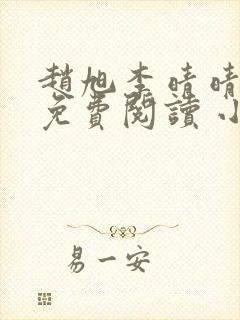 趙旭李晴晴
免費閱讀小
易一安